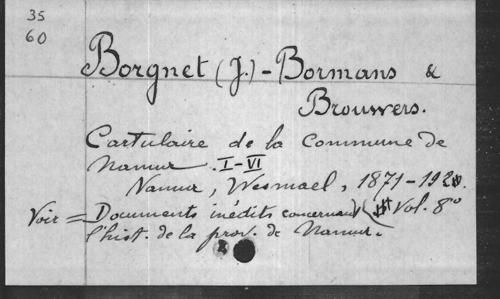 35
60
Borgnet (J.) - Bormans &
Brouwers.
Cartulaire de la Commune de
Namur. I-VI
Namur, Wesmael, 1871-192
Voir = Documents inédits concernant Vol. 8°
l'hist. de la prov. de Namur.